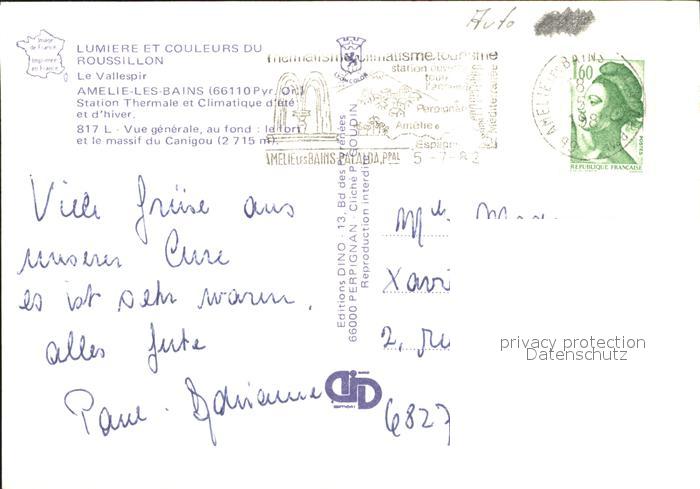 Auto
Image de France
Imprimée en France
LUMIERE ET COULEURS DU
ROUSSILLON
Le Vallespir
AMELIE-LES-BAINS (66110 Pyr. Or.)
Station Thermale et Climatique d'été
et d'hiver.
817 L - Vue générale, au fond : le fort
et le massif du Canigou (2 715 m).
LYON-COLOR
thermalisme.climatisme.tourisme
station ouverte
toute
l'année
Perpignan
Amélie
Espagne
Méditerranée
AMELIE LES BAINS PALALDA, PPAL 5-7-82
AMELIE LES BAINS
1.60
POSTES
REPUBLIQUE FRANCAISE
Editions DINO - 13, Bd des Pyrénées
66000 PERPIGNAN - Cliché P. GOUDIN
Reproduction interdite
Viele Grüsse aus
unserer Cure
es ist sehr warm.
alles Gute
Paul. Adrienne
DINO
Xavi
2, Ru
6827
privacy protection
Datenschutz